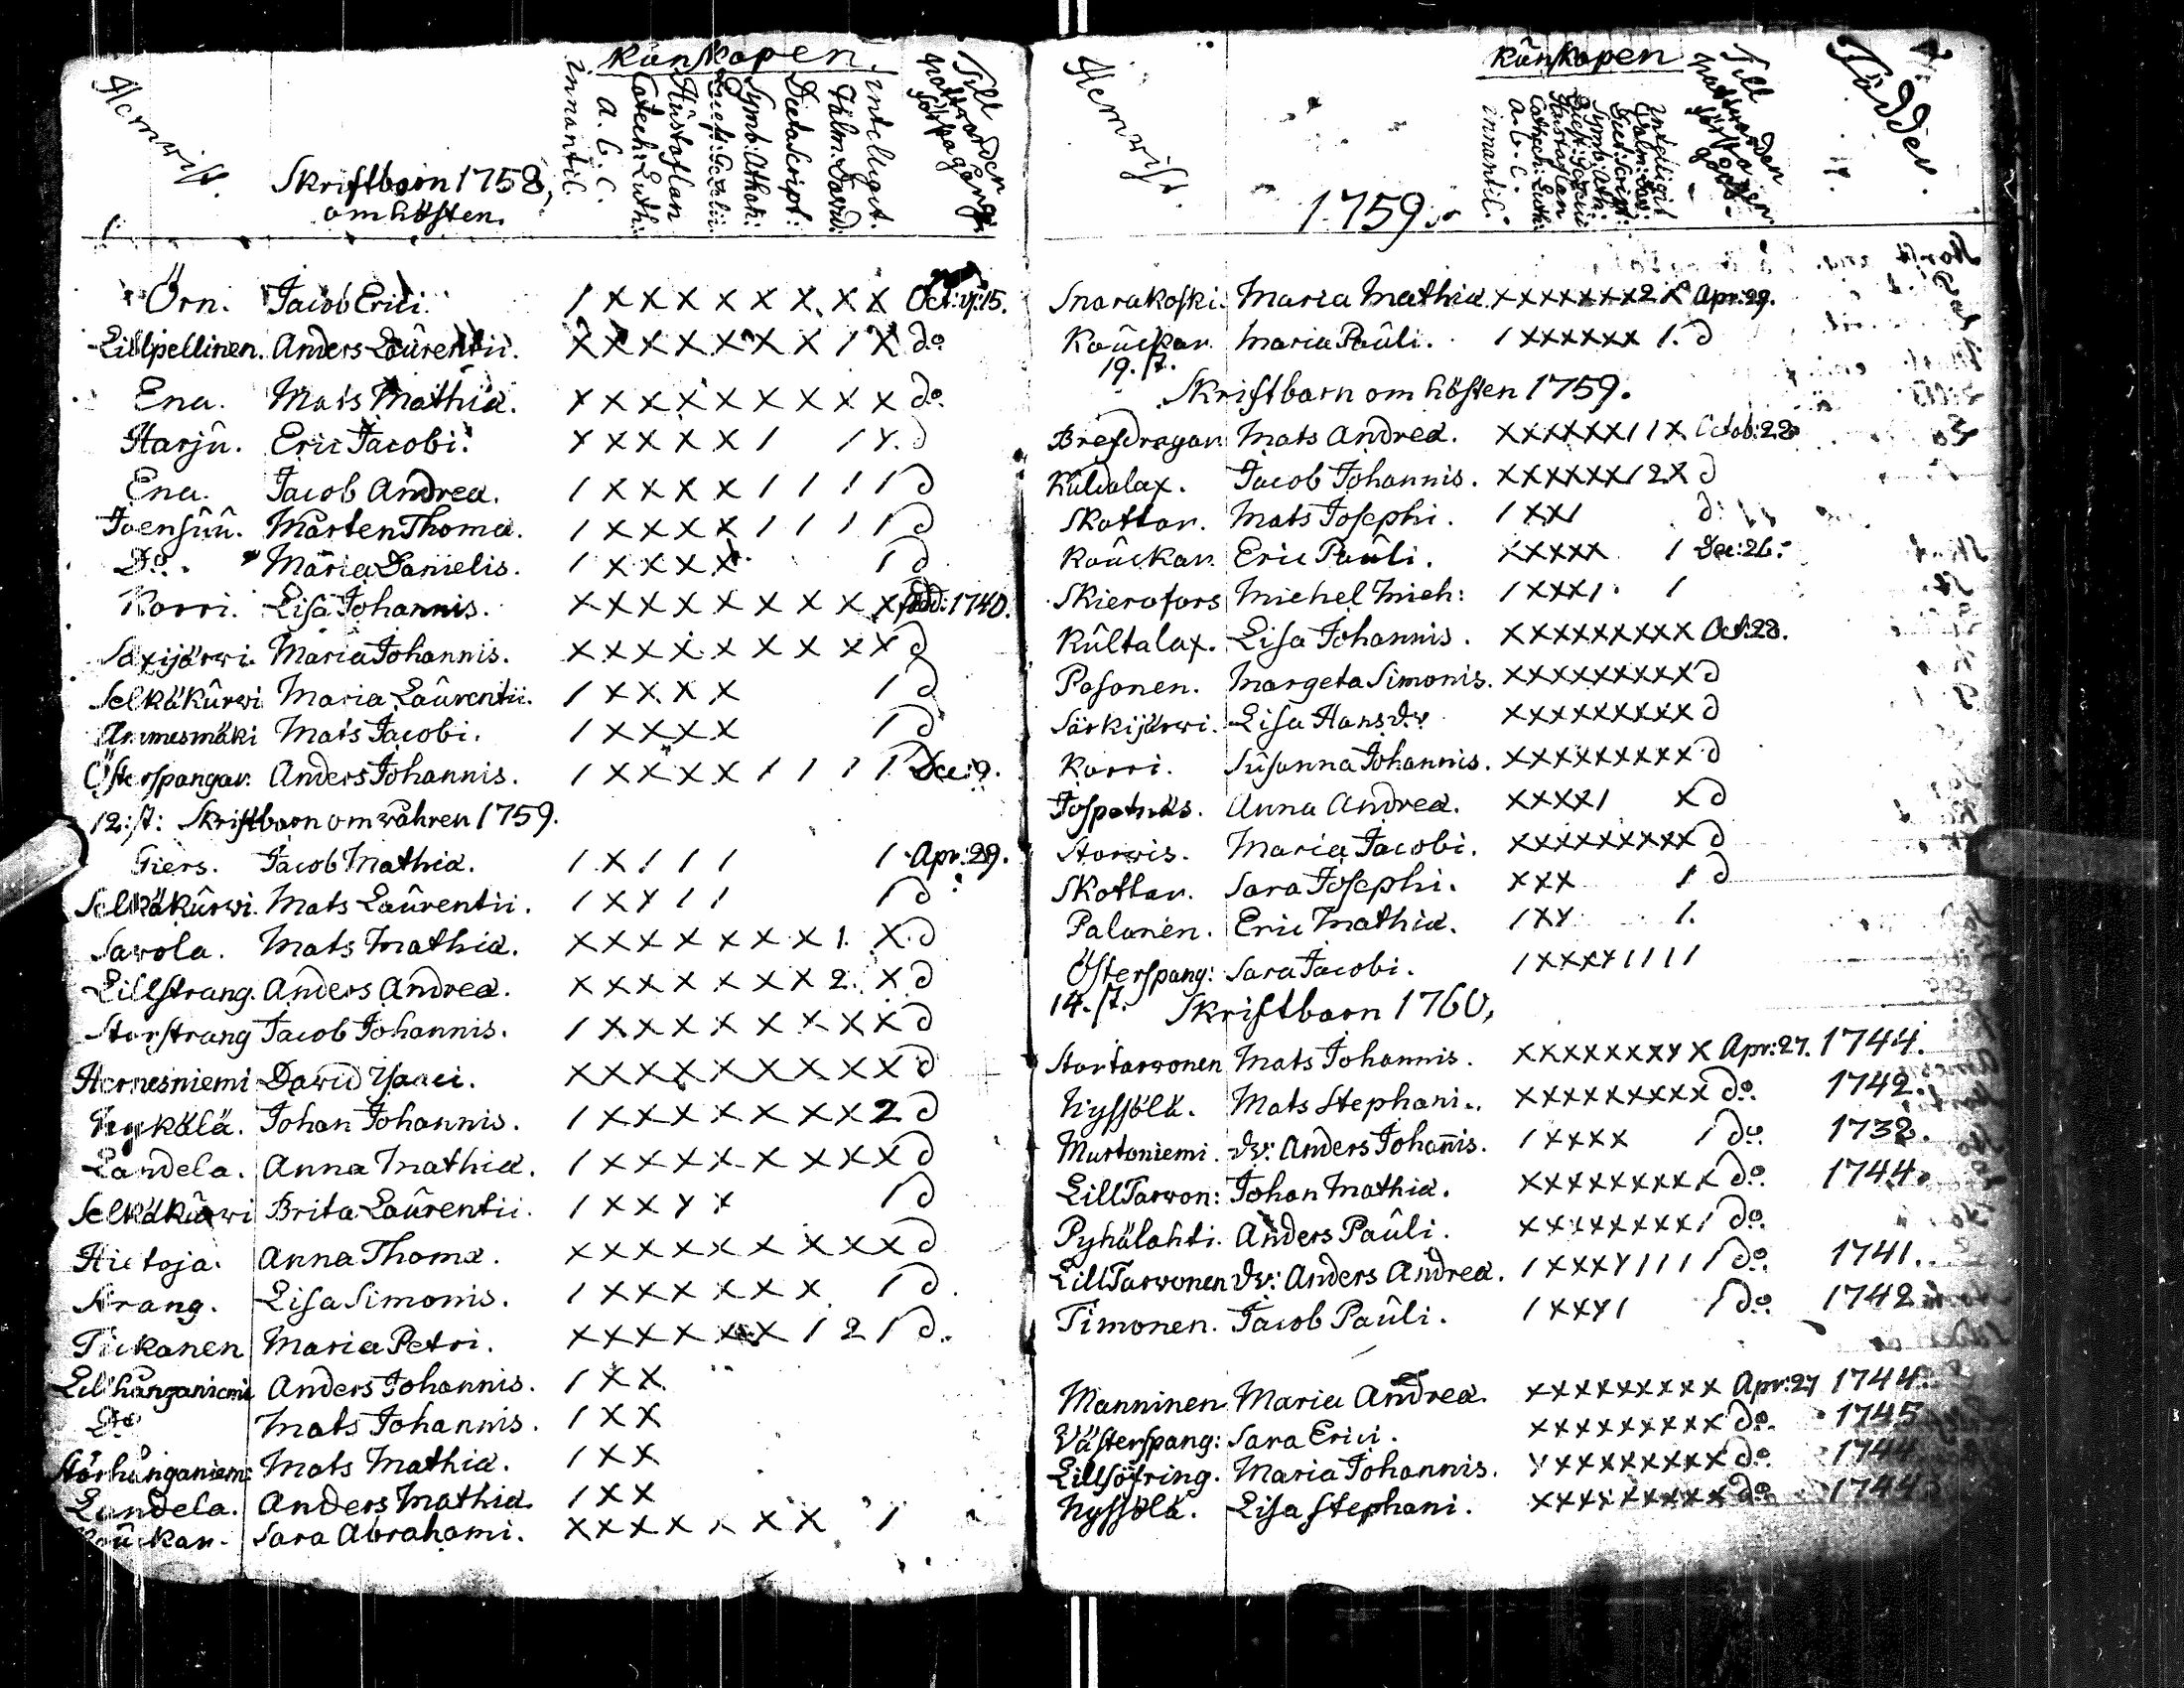 Kûnskapen.
Hemwist.
Skriftbarn 1758,
om hösten.
innantil.
A. B. C.
Catech: Luth:
Hustaflan
Quæst: Gezelii:
Symb: Athan:
Dicta Script:
Psalm: David:
intelligit.
Till nattwarden första gång:
Örn. Jacob Erici. 1 x x x x x x x x Oct: 15.
Lillpellinen. Anders Laûrentii. x x x x x x x 1 x do
Ena. Mats Mathiæ. x x x x x x x x x do
Harjû. Eric Jacobi. x x x x x 1 1 x. d
Ena. Jacob Andreæ. 1 x x x x 1 1 1 1 d
Joensûû. Mårten Thomæ. 1 x x x x 1 1 1 1 d
Do. Maria Danielis. 1 x x x x 1 d
Korri. Lisa Johannis. x x x x x x x x x född: 1740.
Saxijärwi. Maria Johannis. x x x x x x x x x d
Selkäkûrwi Maria Laûrentii. 1 x x x x 1 d
Ammesmäki Mats Jacobi. 1 x x x x 1 d
Österspangar. Anders Johannis. 1 x x x x 1 1 1 1 Dec: 9.
12: st: Skriftbarn om wåhren 1759.
Giers. Jacob Mathiæ. 1 x 1 1 1 1 Apr: 29.
Selkäkûrwi. Mats Laûrentii. 1 x x 1 1 1 d
Sawola. Mats Mathiæ. x x x x x x x 1. x. d
Lillstrang. Anders Andreæ. x x x x x x x 2. x d
Storstrang Jacob Johannis. 1 x x x x x x x x d
Hernesniemi David Isaaci. x x x x x x x x x d
Nykälä. Johan Johannis. 1 x x x x x x x 2 d
Landela. Anna Mathiæ. 1 x x x x x x x x d
Selkäkûrwi Brita Laûrentii. 1 x x x x 1 d
Hietoja. Anna Thomæ. x x x x x x x x x d
Strang. Lisa Simonis. 1 x x x x x x 1 d
Tickanen Maria Petri. x x x x x x 1 2 1 d.
Lillhånganiemi Anders Johannis. 1 x x
Do Mats Johannis. 1 x x
Storhånganiem: Mats Mathiæ. 1 x x
Landela. Anders Mathiæ. 1 x x
Kaûckar. Sara Abrahami. x x x x x x x 1
Kûnskapen
Hemwist.
1759.
innantil.
A. B. C.
Catech: Luth:
Hustaflan
Quæst: Gezelii
Symb: Ath:
Dict: Script:
Psalm: Dav:
intelligit
Till nattwarden första gång.
Född.
Snarakoski. Maria Mathiæ x x x x x x x 2 x Apr: 29.
Kaûckar. Maria Paûli. 1 x x x x x x 1. d
19. st.
Skriftbarn om hösten 1759.
Bresdragar. Mats Andreæ. x x x x x x 1 1 x Octob: 28
Kuldalax. Jacob Johannis. x x x x x x 1 2 x d
Skottar. Mats Josephi. 1 x x 1 d:
Kaûckar. Eric Paûli. x x x x x 1 Dec: 26.
Skierafars Michel Mich: 1 x x x 1. 1
Kûltalax. Lisa Johannis. x x x x x x x x x Oct: 28.
Pasonen. Margeta Simonis. x x x x x x x x x d
Särkijärwi. Lisa Hansdr x x x x x x x x x d
Korri. Susanna Johannis. x x x x x x x x x d
Jospetnäs. Anna Andreæ. x x x x 1 x d
Storwis. Maria Jacobi. x x x x x x x x x d
Skottar. Sara Josephi. x x x 1 d
Palanen. Eric Mathiæ. 1 x x 1.
Österspang: Sara Jacobi. 1 x x x x 1 1 1 1
14. st. Skriftbarn 1760,
Stortarwonen Mats Johannis. x x x x x x x x x Apr: 27. 1744.
Nyssölä. Mats Stephani. x x x x x x x x x do. 1742.
Murtoniemi. dr: Anders Johan̄is. 1 x x x x 1 do. 1738.
LillTarwon: Johan Mathiæ. x x x x x x x x x do. 1744.
Pyhälahti. Anders Paûli. x x x x x x x x 1 do.
LillTarwonen dr: Anders Andreæ. 1 x x x x 1 1 1 1 do. 1741.
Timonen. Jacob Paûli. 1 x x x 1 1 do. 1742
Manninen Maria Andreæ. x x x x x x x x x Apr: 27 1744.
Västerspang: Sara Erici. x x x x x x x x x do. 1745
Lillsöfring. Maria Johannis. x x x x x x x x x do. 1744
Nyssölä. Lisa Stephani. x x x x x x x x x do 1744